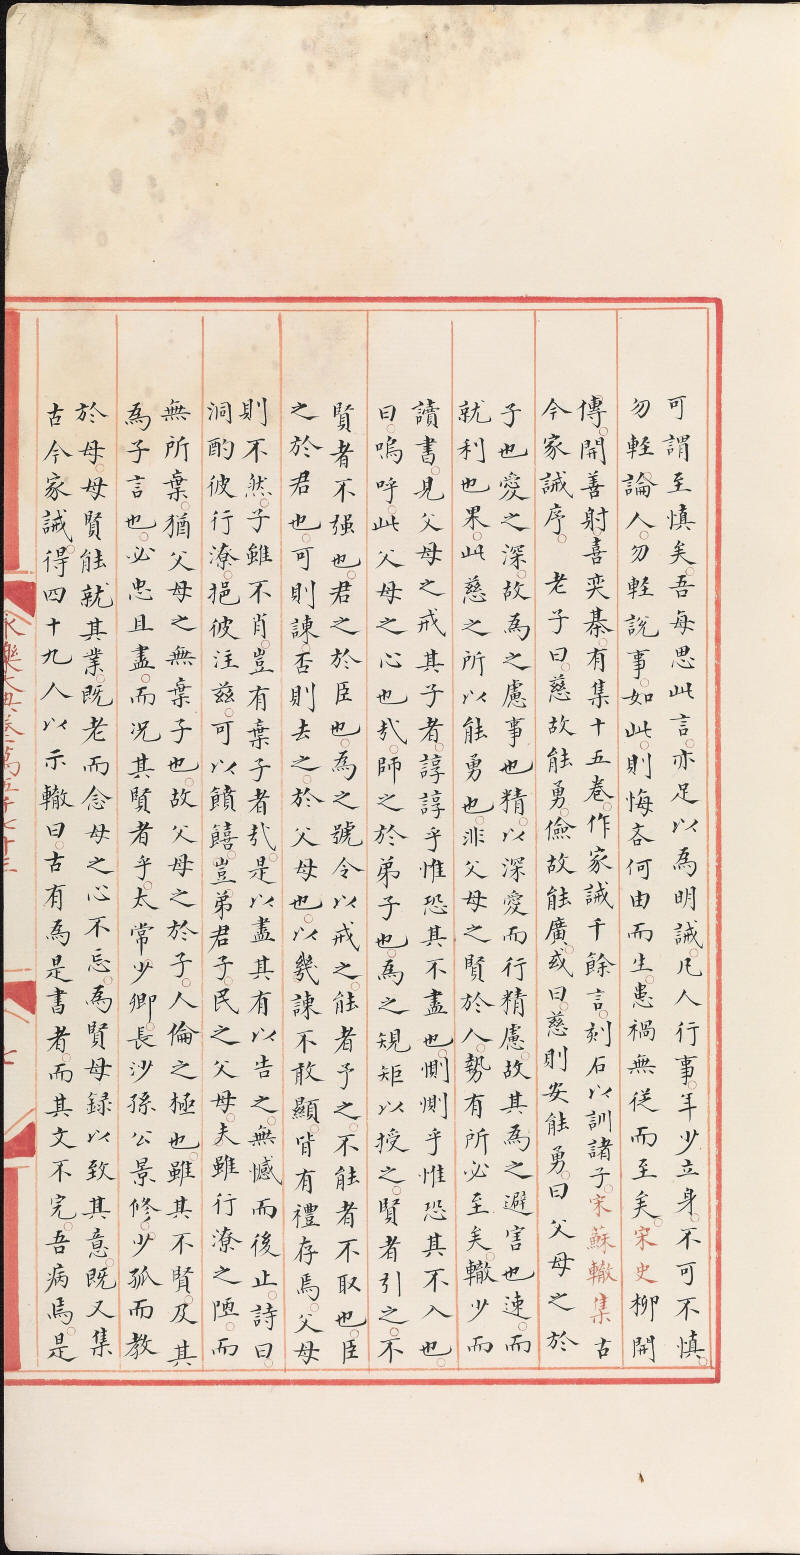 可謂至慎矣吾每思此言亦足以為明誡凡人行事年少立身不可不慎
勿輕論人勿輕說事如此則悔吝何由而生患禍無從而至矣宋史柳開
傳開善射喜奕棊有集十五卷作家誡千餘言刻石以訓諸子宋蘇轍集古
今家誡序 老子曰慈故能勇儉故能廣或曰慈則安能勇曰父母之於
子也愛之深故為之慮事也精以深愛而行精慮故其為之避害也速而
就利也果此慈之所以能勇也非父母之賢於人勢有所必至矣轍少而
讀書見父母之戒其子者諄諄乎惟恐其不盡也惻惻乎惟恐其不入也
曰嗚呼此父母之心也哉師之於弟子也為之規矩以授之賢者引之不
賢者不强也君之於臣也為之號令以戒之能者予之不能者不取也臣
之於君也可則諫否則去之於父母也以幾諫不敢顯皆有禮存焉父母
則不然子雖不肖豈有棄子者哉是以盡其有以告之無憾而後止詩曰
洞酌彼行潦挹彼注兹可以饙饎豈弟君子民之父母夫雖行潦之陋而
無所棄猶父母之無棄子也故父母之於子人倫之極也雖其不賢及其
為子言也必忠且盡而況其賢者乎太常少卿長沙孫公景修少孤而教
於母母賢能就其業既老而念母之心不忘為賢母録以致其意既又集
古今家誡得四十九人以示轍曰古有為是書者而其文不完吾病焉是
永樂大典卷一萬五千七十三
七